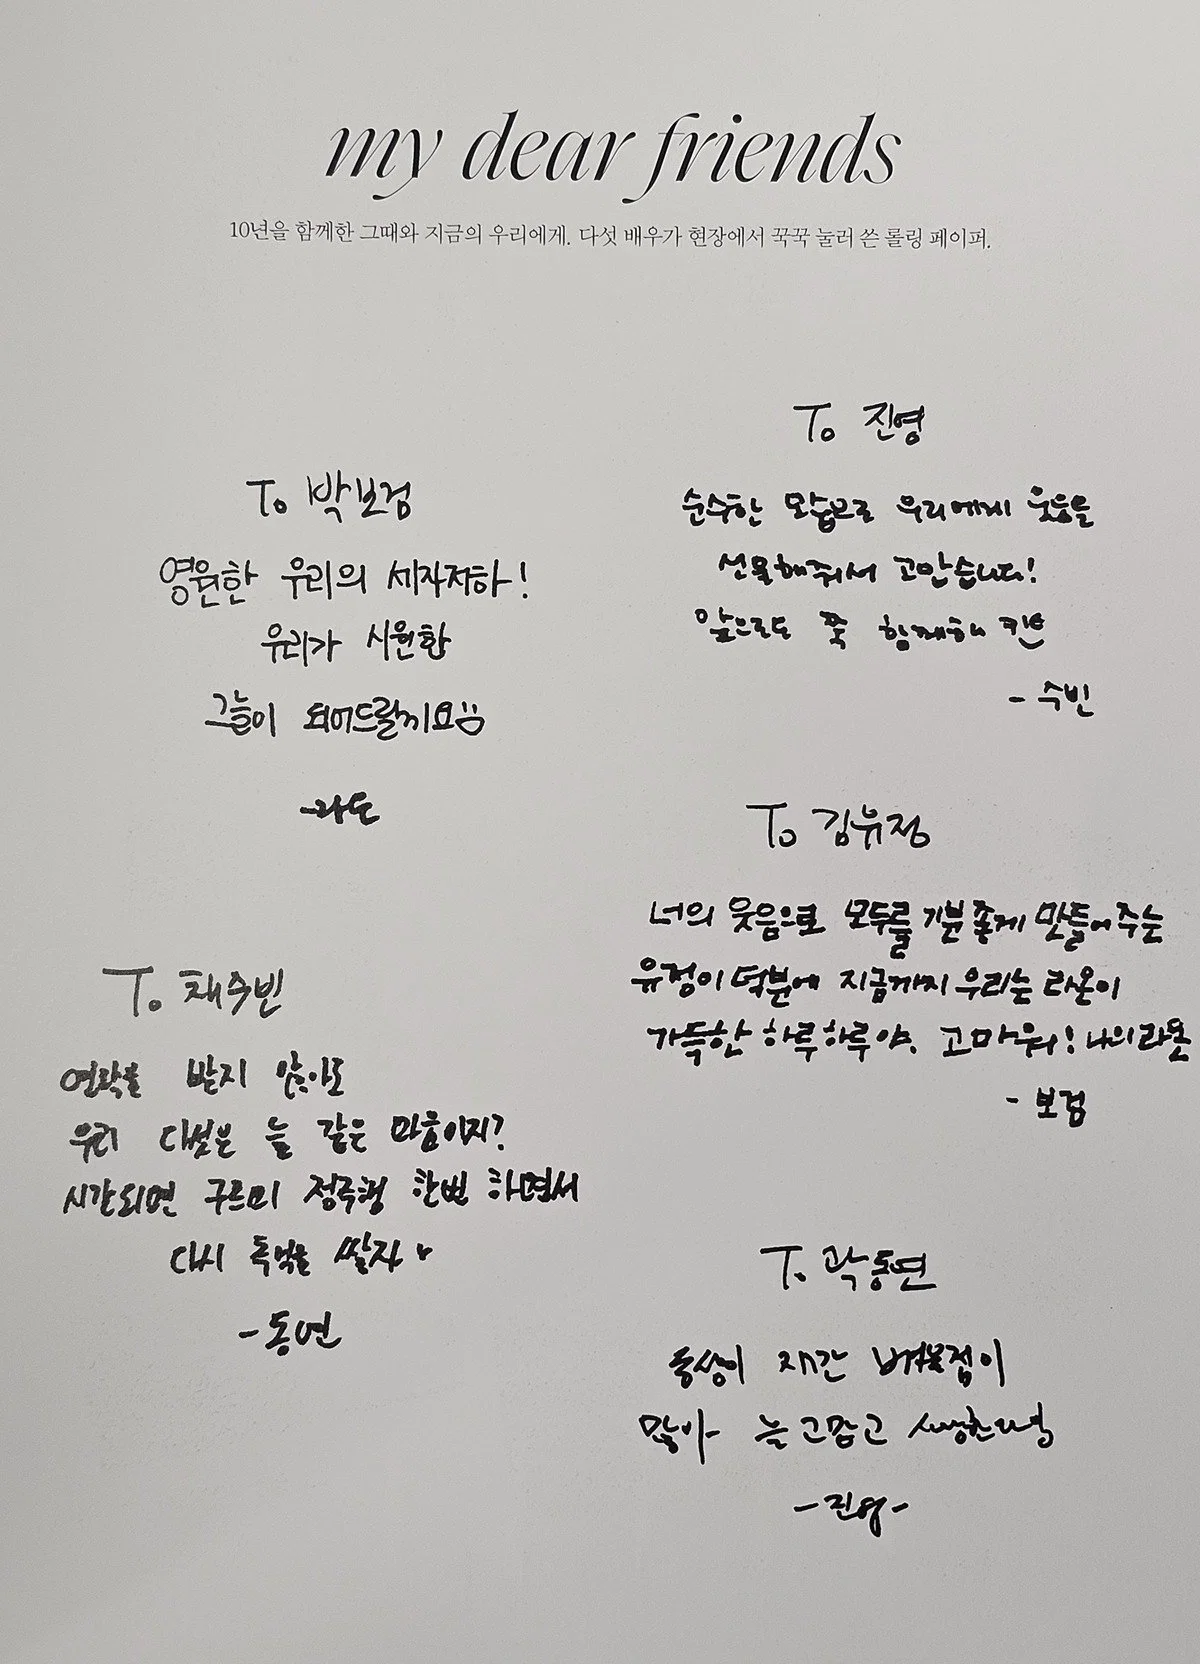 my dear friends
10년을 함께한 그때와 지금의 우리에게. 다섯 배우가 현장에서 꾹꾹 눌러 쓴 롤링 페이퍼.
To 박보검
영원한 우리의 세자저하!
우리가 시원한
그늘이 되어드랄게요
To 진영
순수한 모습으로 우리에게 웃음을
선물해줘서 고맙습니다!
앞으로도 쭉 함께해
- 수빈
To 김유정
너의 웃음으로 모두를 기분 좋게 만들어주는
유정이 덕분에 지금까지 우리는 라온이
가득한 하루하루야. 고마워! 나의 라온
- 보검
To 채수빈
연락을 받지 않아도
우리 다섯은 늘 같은 마음이지?
시간되면 구르미 정주행 한번 하면서
다시 추억을 쌓자
- 동연
To 곽동연
동생이 지만 배울점이
많아 늘 고맙고
- 진영 -